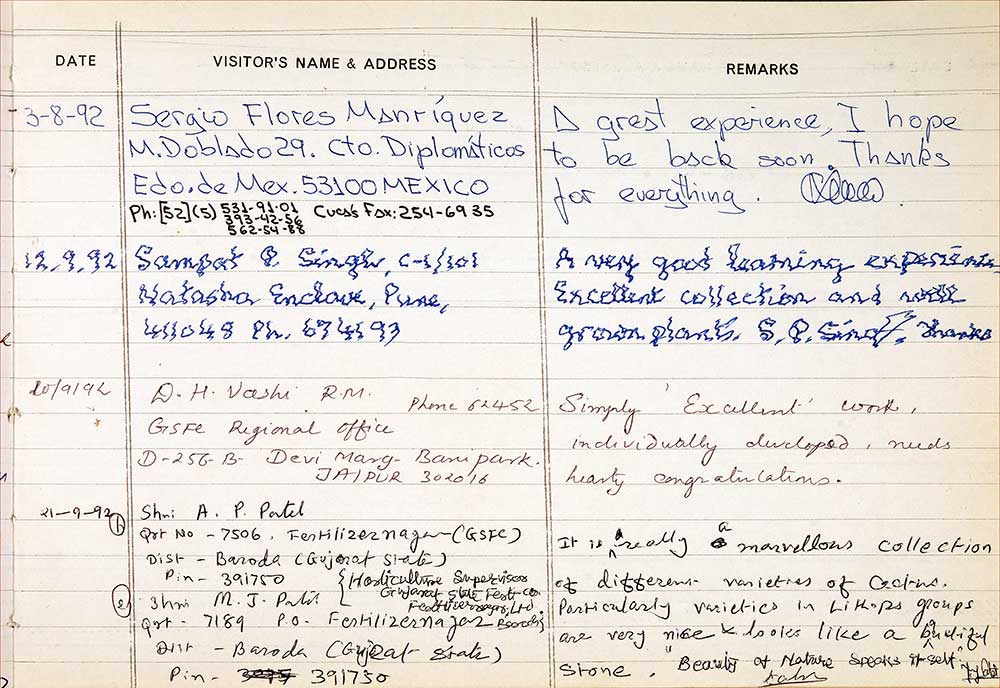 DATE
VISITOR'S NAME & ADDRESS
REMARKS
3-8-92
Sergio Flores Manríquez
M. Doblado 29. Cto. Diplomáticos
Edo. de Mex. 53100 MEXICO
Ph: [52] (5) 531-91-01
393-42-56
562-54-88
Fax: 254-69 35
A great experience, I hope
to be back soon. Thanks
for everything.
12,9,92
Sampat P. Singh,
Natasha Enclave, Pune,
411048 Ph. 674193
A very good learning experience
Excellent collection and well
grown plants. S. P. Singh, Thanks
20/9/92
D. H. Vashi R.M.
Phone 62452
GSFC Regional Office
D-256-B- Devi Marg- Banipark.
JAIPUR 302016
Simply 'Excellent' work,
individually developed, needs
hearty congratulations.
21-9-92
1
Shri A. P. Patel
Qrt No - 7506, Fertilizernagar (GSFC)
Dist - Baroda (Gujarat State)
Pin - 391750
{Horticulture Supervisor
Gujarat State Fert. Co.
Fertilizernagar, Ltd
2
Shri M. J. Patel
Qrt - 7189 P.O. Fertilizernagar
Dist - Baroda (Gujarat State)
Pin - 391750
It is really a marvellous collection
of different varieties of Cactus.
Particularly varieties in Lithops groups
are very nice & looks like a beautiful
stone. "Beauty of Nature speaks itself"